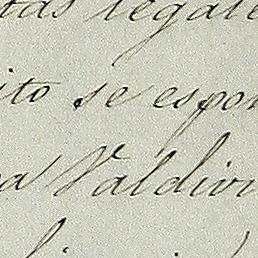 tas legale
ito se espon
a Valdivi